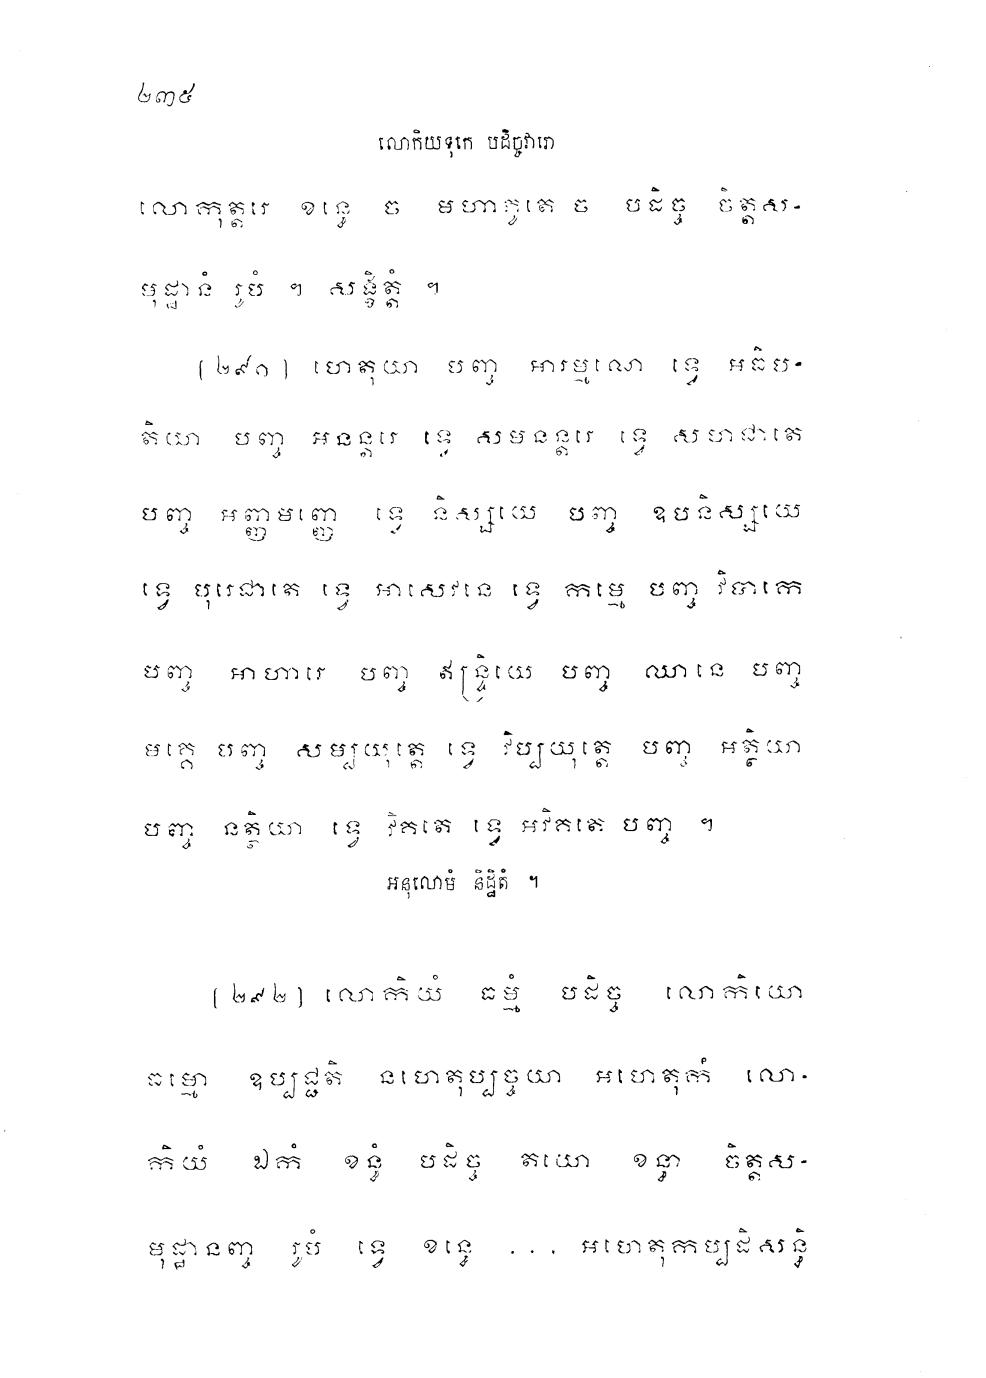 ២៣៥
លោកិយទុកេ បដិច្ចវារោ
លោកុត្តរេ ខន្ធេ ច មហាភូតេ ច បដិច្ច ចិត្តស-
មុដ្ឋានំ រូបំ ។ សង្ខិត្តំ ។
(២៩១) ហេតុយា បញ្ច អារម្មណេ ទ្វេ អធិប-
តិយា បញ្ច អនន្តរេ ទ្វេ សមនន្តរេ ទ្វេ សហជាតេ
បញ្ច អញ្ញមញ្ញេ ទ្វេ និស្សយេ បញ្ច ឧបនិស្សយេ
ទ្វេ បុរេជាតេ ទ្វេ អាសេវនេ ទ្វេ កម្មេ បញ្ច វិបាកេ
បញ្ច អាហារេ បញ្ច ឥន្ទ្រិយេ បញ្ច ឈានេ បញ្ច
មគ្គេ បញ្ច សម្បយុត្តេ ទ្វេ វិប្បយុត្តេ បញ្ច អត្ថិយា
បញ្ច នត្ថិយា ទ្វេ វិគតេ ទ្វេ អវិគតេ បញ្ច ។
អនុលោមំ និដ្ឋិតំ ។
(២៩២) លោកិយំ ធម្មំ បដិច្ច លោកិយោ
ធម្មោ ឧប្បជ្ជតិ នហេតុប្បច្ចយា អហេតុកំ លោ-
កិយំ ឯកំ ខន្ធំ បដិច្ច តយោ ខន្ធា ចិត្តស-
មុដ្ឋានញ្ច រូបំ ទ្វេ ខន្ធេ ... អហេតុកប្បដិសន្ធិ